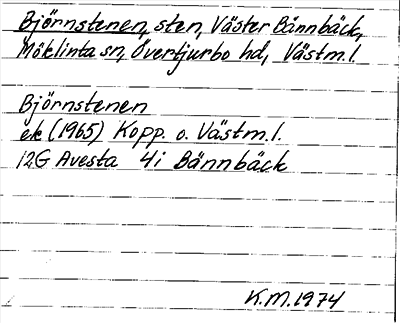 Björnstenen, sten, Väster Bännbäck,
Möklinta sn, Övertjurbo hd, Västm.l.
Björnstenen
ek (1965) Kopp. o. Västm.l.
12G Avesta 4i Bännbäck
K.M.1974